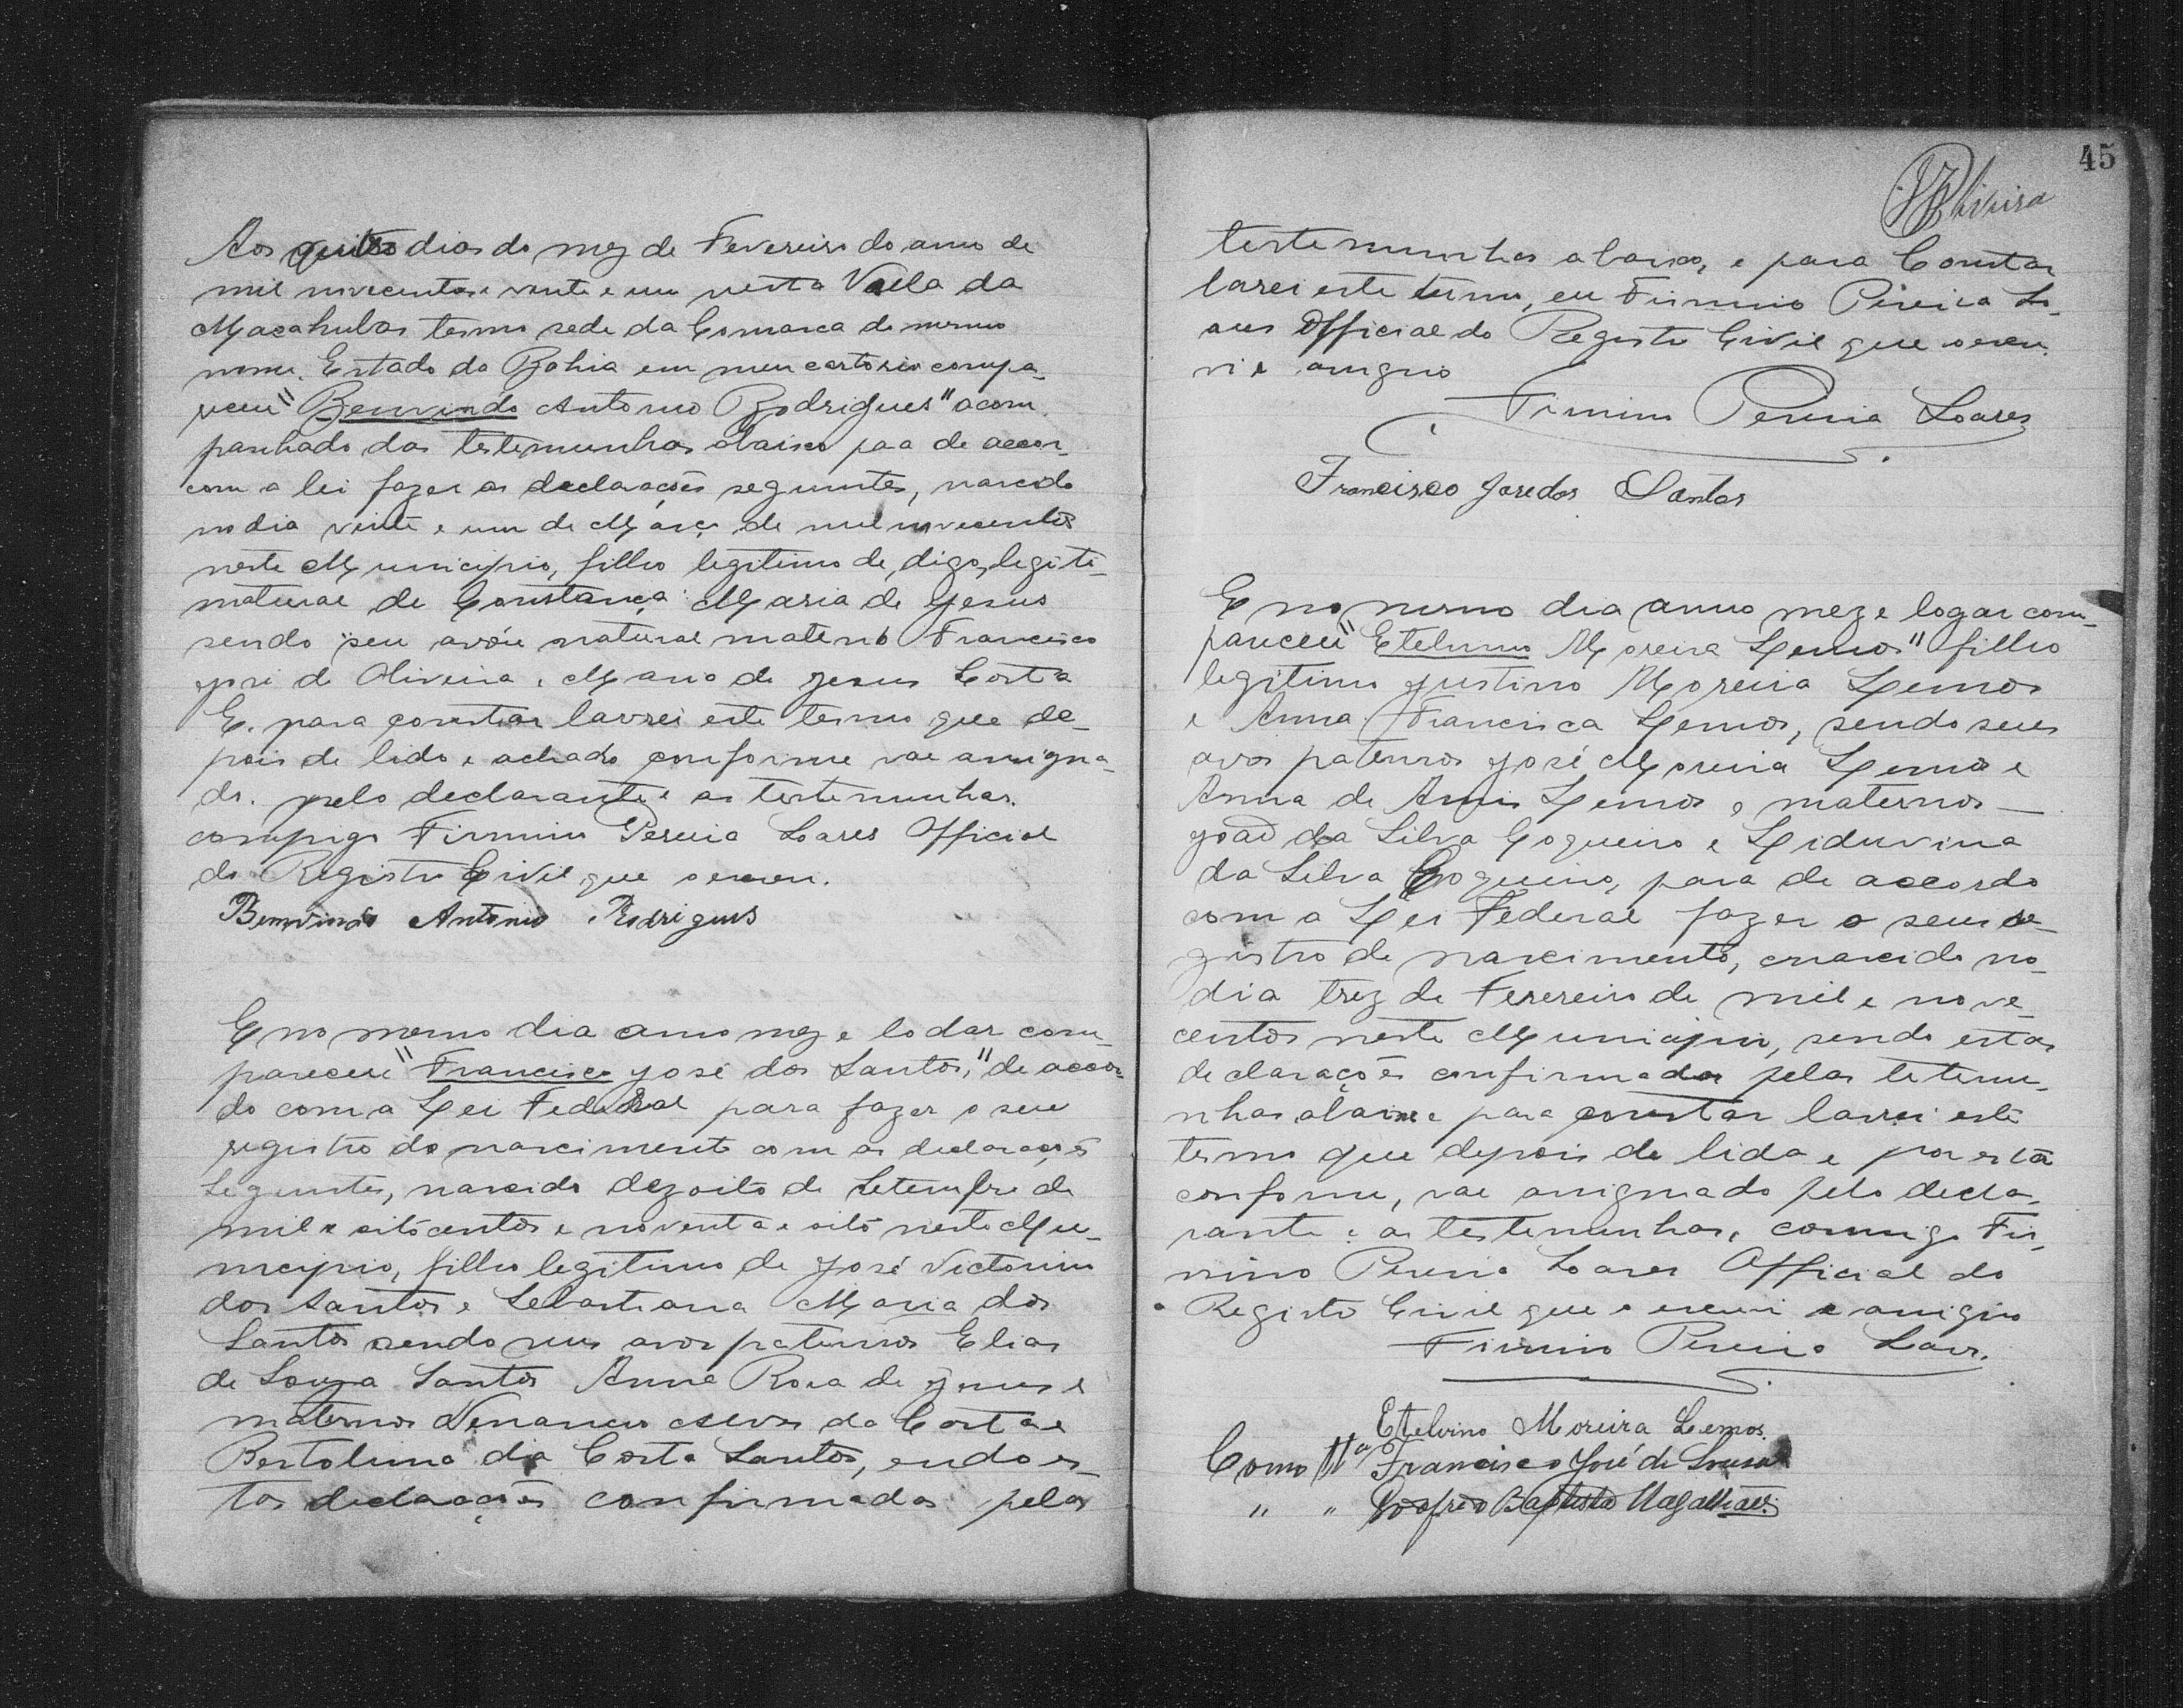 Aos dias do mez de Fevereiro do anno de
mil novecentos e vinte e um nesta Villa da
Macahubas termo sede da Comarca do mesmo
nome, Estado da Bahia em meu cartorio compa-
receu "Bemvindo Antonio Rodrigues" acom-
panhado das testemunhas abaixo paa de accor-
com a lei fazer as declarações seguintes, nascido
no dia vinte e um de Março de mil novecentos
neste Municipio, filho legitimo de, digo, legiti-
natural de Constança Maria de Jesus
sendo seu avóu natural materno Francisco
José de Oliveira e Maria de Jesus Costa
E. para constar lavrei este termo que de-
pois de lido e achado conforme vae assigna-
do. pelo declarante e as testemunhas.
comigo Firmino Pereira Soares Official
do Registro Civil que o escrevi.
Bemvindo Antonio Rodrigues
E no mesmo dia anno mez e lodar com-
pareceu "Francisco José dos Santos," de accor-
do com a Lei Federal para fazer o seu
registro do nascimento com as declarações
Seguintes, nascido dezoito de Setembro de
mil e oitocentos e noventa e oito neste Mu-
nicipio, filho legitimo de José Victorino
dos Santos e Sebastiana Maria dos
Santos sendo seus avos paternos Elias
de Souza Santos Anna Rosa de Jesus e
maternos Venancio Alves da Costa e
Bertolina da Costa Santos, endo es-
tas declaações confirmadas pelas
45
Oliveira
testemunhas abaixo, e para Constar
larei este termo, eu Firmino Pereira So-
ares Official do Registro Civil que o escre-
vi e assigno
Firmino Pereira Soares
Francisco José dos Santos
E no mesmo dia anno mez e logar com-
pareceu "Etelvino Moreira Lemos" filho
legitimo Justino Moreira Lemos
e Anna Francisca Lemos, sendo seus
avos paternos José Moreira Lemos e
Anna de Lemos e maternos
João da Silva Coqueiro e Liduvina
da Silva Coqueiro, para de accordo
com a Lei Federal fazer o seu re-
gistro de nascimento, nascido no
dia trez de Fevereiro de mil e nove-
centos neste Municipio, sendo estas
declarações confirmadas pelas tetemu-
nhas abaixo e para constar lavrei este
termo que depois de lida e por está
conforme, vae assignado pelo decla-
rante e as testemunhas, commigo Fir-
mino Pereira Soares Official do
Registo Civil que o escrevi e assigno
Firmino Pereira Soares.
Etelvino Moreira Lemos.
Como Ttª Francisco José de Sousa
" " Baptista Magalhães.